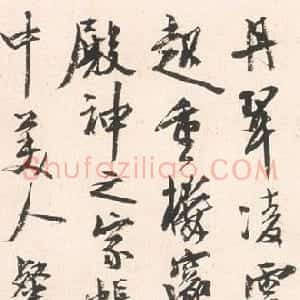 丹翠凌雲
起重樓
殿神之家帳
中美人
Shufaziliao.COM